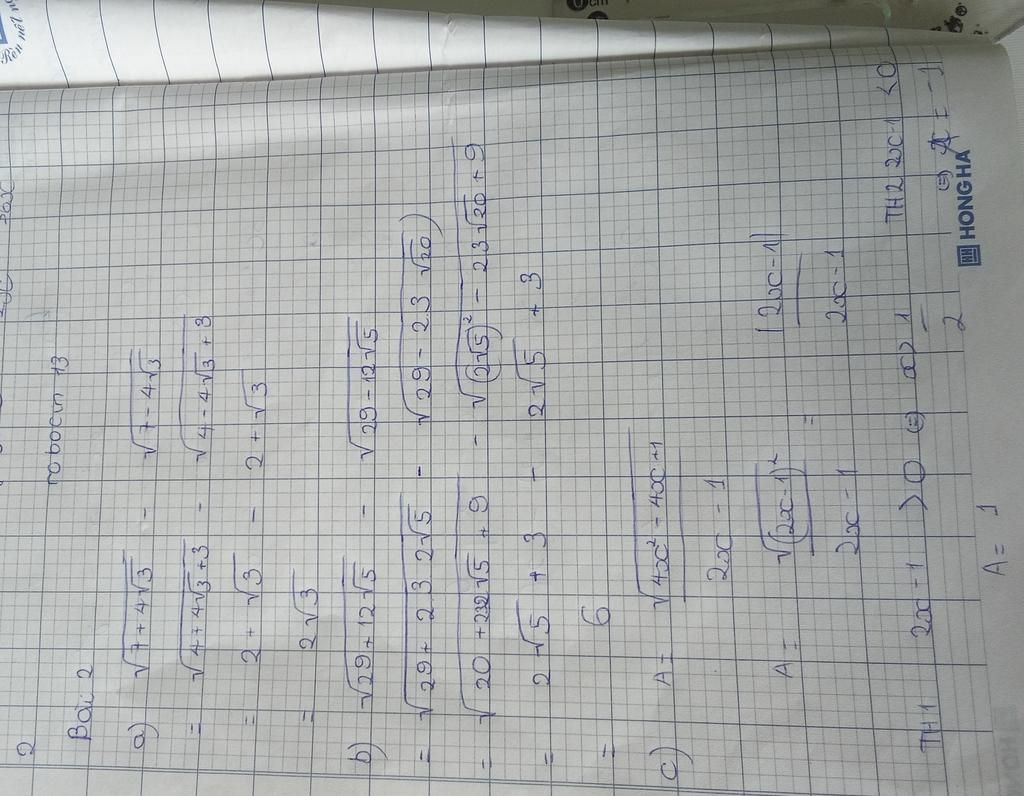 2
Bài 2
a) √(7+4√3) - √(7-4√3)
= √(4+4√3+3) - √(4-4√3+3)
= 2+√3 - 2+√3
= 2√3
b) √(29+12√5) - √(29-12√5)
= √(29+2.3.2√5) - √(29-2.3√20)
= √(20+2.3.2√5+9) - √((2√5)²-2.3√20+9)
= 2√5+3 - 2√5+3
= 6
c) A= √(4x²-4x+1) / (2x-1)
A= √((2x-1)²) / (2x-1) = |2x-1| / (2x-1)
TH1 2x-1>0 (=) x>1/2 TH2 2x-1<0
A= 1 (=) A=-1
HONG HA